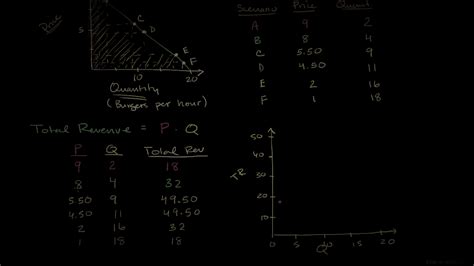 Scenario Price Quant
A 9 2
B 8 4
C 5.50 9
D 4.50 11
E 2 16
F 1 18
Price
5
C
D
E
F
10 20
Quantity
(Burgers per hour)
Total Revenue = P · Q
P Q Total Rev
9 2 18
8 4 32
5.50 9 49.50
4.50 11 49.50
2 16 32
1 18 18
TR
50
40
30
20
10
0 5 10 15 20
Q